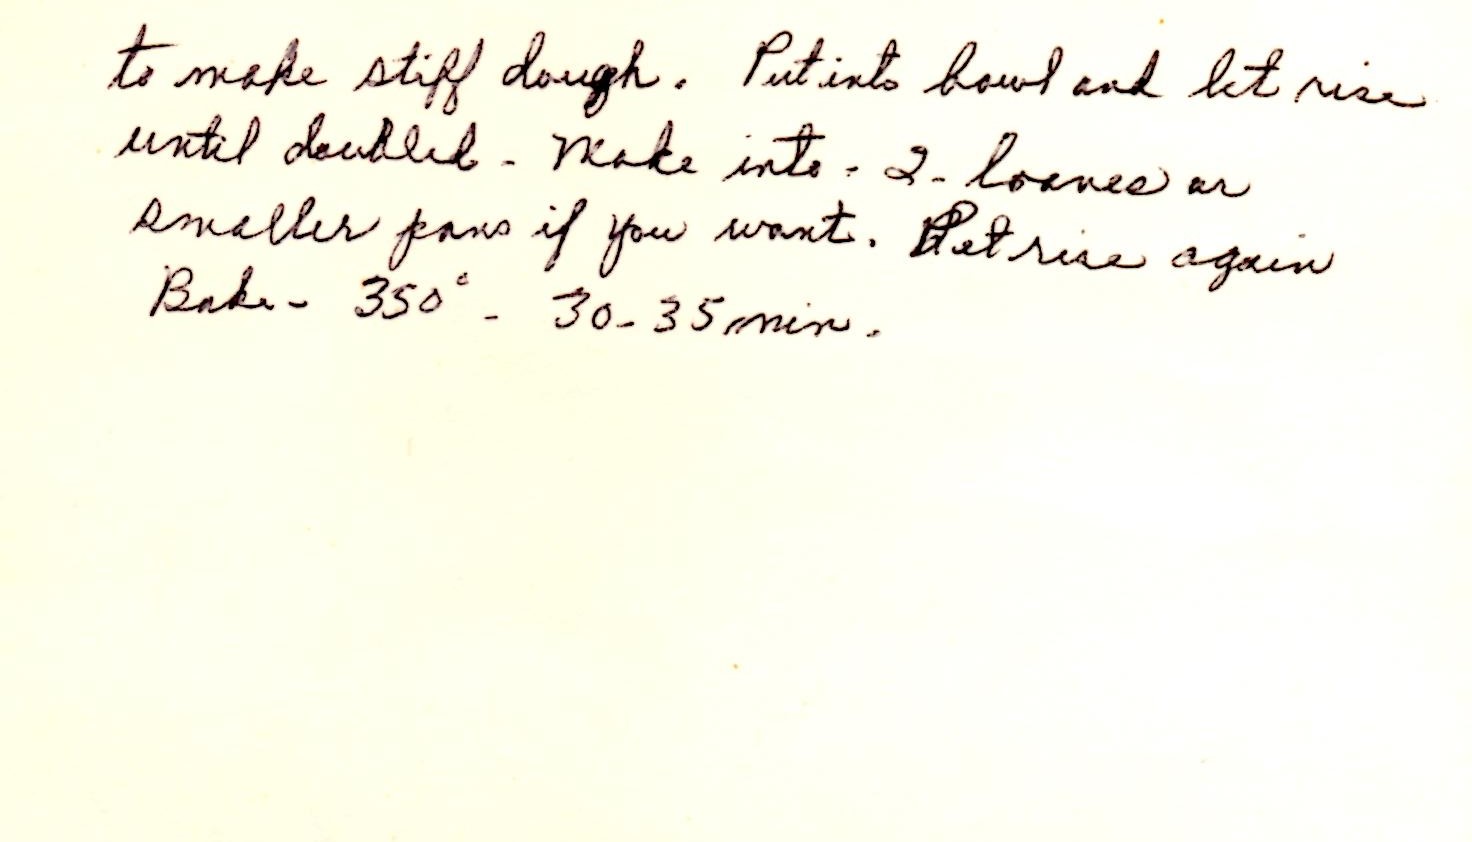 to make stiff dough. Put into bowl and let rise
until doubled - Make into - 2 - loaves or
smaller pans if you want. Let rise again
Bake - 350° - 30-35 min.